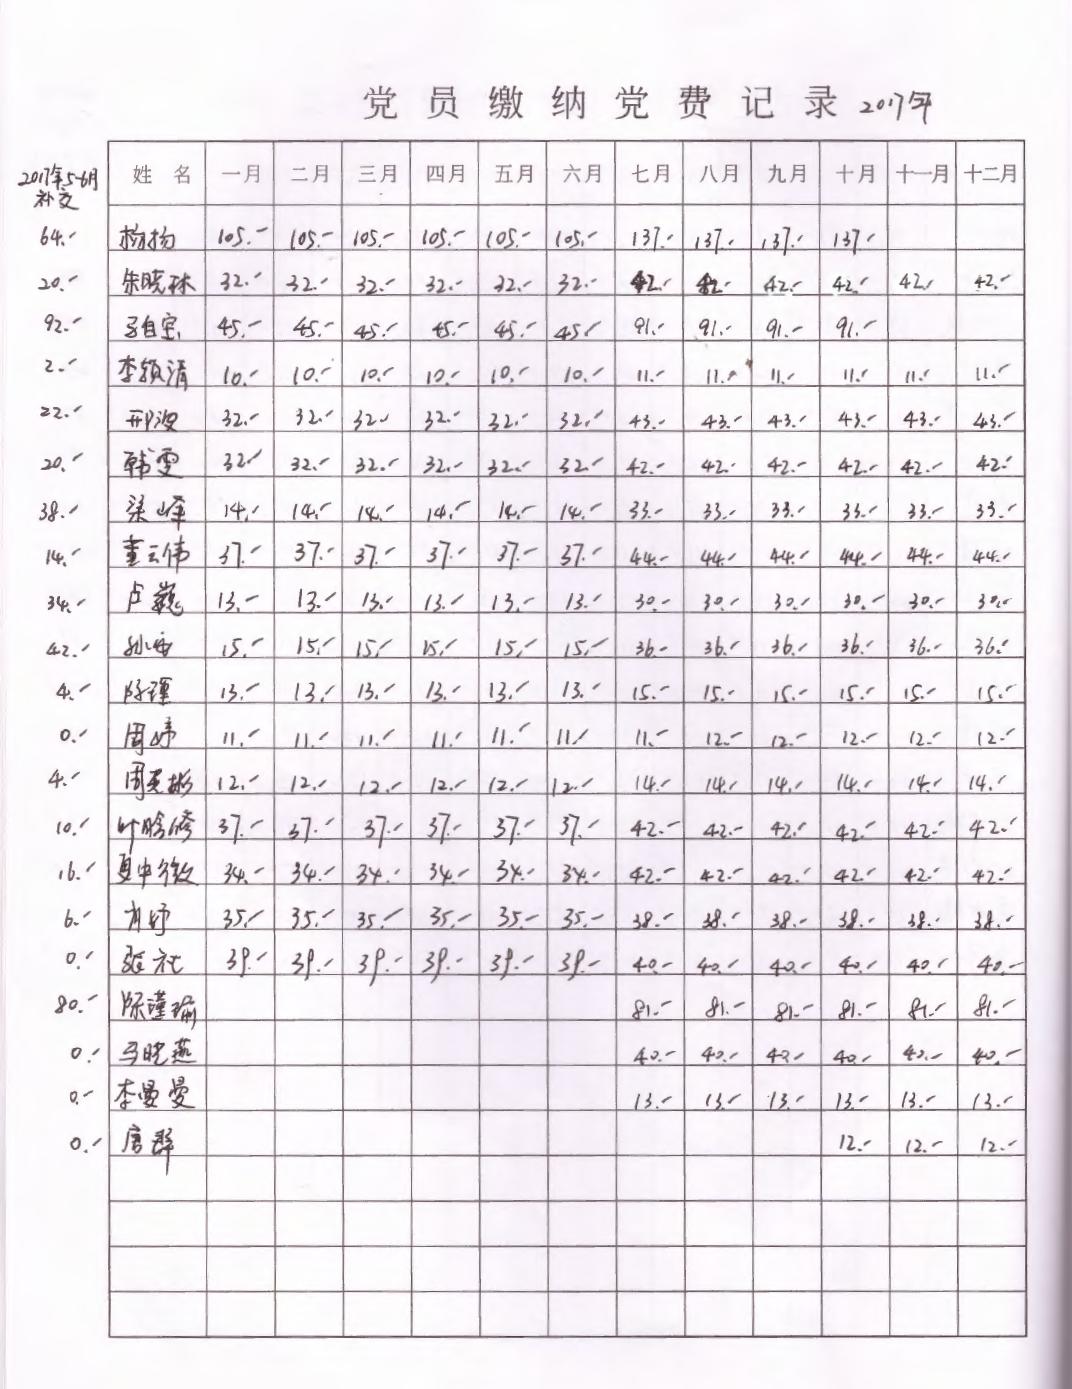 党员缴纳党费记录 2017年
2017年5-6月 姓名 一月 二月 三月 四月 五月 六月 七月 八月 九月 十月 十一月 十二月
补交
64.- 杨扬 105.- 105.- 105.- 105.- 105.- 105.- 137.- 137.- 137.- 137.-
20.- 朱晓林 32.- 32.- 32.- 32.- 32.- 32.- 42.- 42.- 42.- 42.- 42.- 42.-
92.- 马自宝 45.- 45.- 45.- 45.- 45.- 45.- 91.- 91.- 91.- 91.-
2.- 李颖清 10.- 10.- 10.- 10.- 10.- 10.- 11.- 11.- 11.- 11.- 11.- 11.-
22.- 邢波 32.- 32.- 32.- 32.- 32.- 32.- 43.- 43.- 43.- 43.- 43.- 43.-
20.- 韩雯 32.- 32.- 32.- 32.- 32.- 32.- 42.- 42.- 42.- 42.- 42.- 42.-
38.- 梁峰 14.- 14.- 14.- 14.- 14.- 14.- 33.- 33.- 33.- 33.- 33.- 33.-
14.- 董云伟 37.- 37.- 37.- 37.- 37.- 37.- 44.- 44.- 44.- 44.- 44.- 44.-
34.- 卢巍 13.- 13.- 13.- 13.- 13.- 13.- 30.- 30.- 30.- 30.- 30.- 30.-
42.- 孙 15.- 15.- 15.- 15.- 15.- 15.- 36.- 36.- 36.- 36.- 36.- 36.-
4.- 陈瑾 13.- 13.- 13.- 13.- 13.- 13.- 15.- 15.- 15.- 15.- 15.- 15.-
0.- 周婷 11.- 11.- 11.- 11.- 11.- 11.- 11.- 12.- 12.- 12.- 12.- 12.-
4.- 周 彬 12.- 12.- 12.- 12.- 12.- 12.- 14.- 14.- 14.- 14.- 14.- 14.-
10.- 叶晗修 37.- 37.- 37.- 37.- 37.- 37.- 42.- 42.- 42.- 42.- 42.- 42.-
16.- 夏中微 34.- 34.- 34.- 34.- 34.- 34.- 42.- 42.- 42.- 42.- 42.- 42.-
6.- 肖妤 35.- 35.- 35.- 35.- 35.- 35.- 38.- 38.- 38.- 38.- 38.- 38.-
0.- 张 39.- 39.- 39.- 39.- 39.- 39.- 40.- 40.- 40.- 40.- 40.- 40.-
80.- 陈瑾瑜 81.- 81.- 81.- 81.- 81.- 81.-
0.- 马晓燕 40.- 40.- 40.- 40.- 40.- 40.-
0.- 李曼曼 13.- 13.- 13.- 13.- 13.- 13.-
0.- 唐群 12.- 12.- 12.-